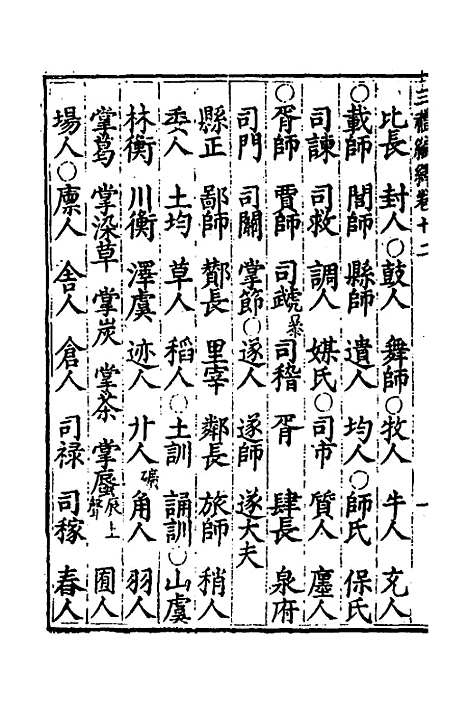 三禮編繹卷十二
一
比長　封人○鼓人　舞師○牧人　牛人　充人
○載師　閭師　縣師　遺人　均人○師氏　保氏
司諫　司救　調人　媒氏○司市　質人　廛人
○胥師　賈師　司虣暴　司稽　胥　肆長　泉府
司門　司關　掌節○遂人　遂師　遂大夫
縣正　鄙師　酇長　里宰　鄰長　旅師　稍人
委人　土均　草人　稻人○土訓　誦訓○山虞
林衡　川衡　澤虞　迹人　廾人礦　角人　羽人
掌葛　掌染草　掌炭　掌荼　掌蜃辰上聲　囿人
場人○廩人　舍人　倉人　司祿　司稼　舂人